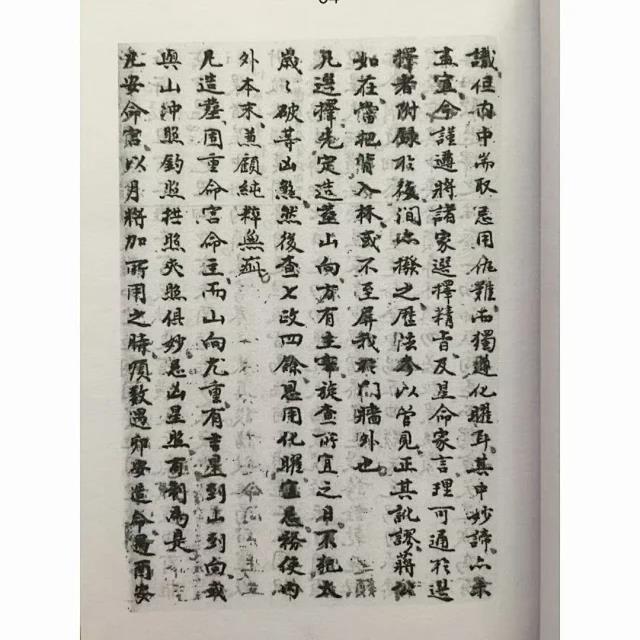 識但內中需取忌用仇難而獨遵化曜耳其中妙諦亦未
盡宣今謹遵將諸家選擇精旨及星命家言理可通於選
擇者附錄於後間亦撥之歷法參以管見正其訛謬蔣公
如在當把臂入林或不至屏我於門牆外也
凡選擇先定造葬山向方有主宰旋查所宜之日不犯太
歲歲破等凶煞然後查七政四餘恩用化曜宜忌務使內
外本末兼顧純粹無疵
凡造葬固重命宮命主而山向尤重有吉星到山到向或
與山沖照鈞照拱照夾照俱妙忌凶星照有制為是
凡安命宮以月將加所用之時順數遇卯安造命遇酉安